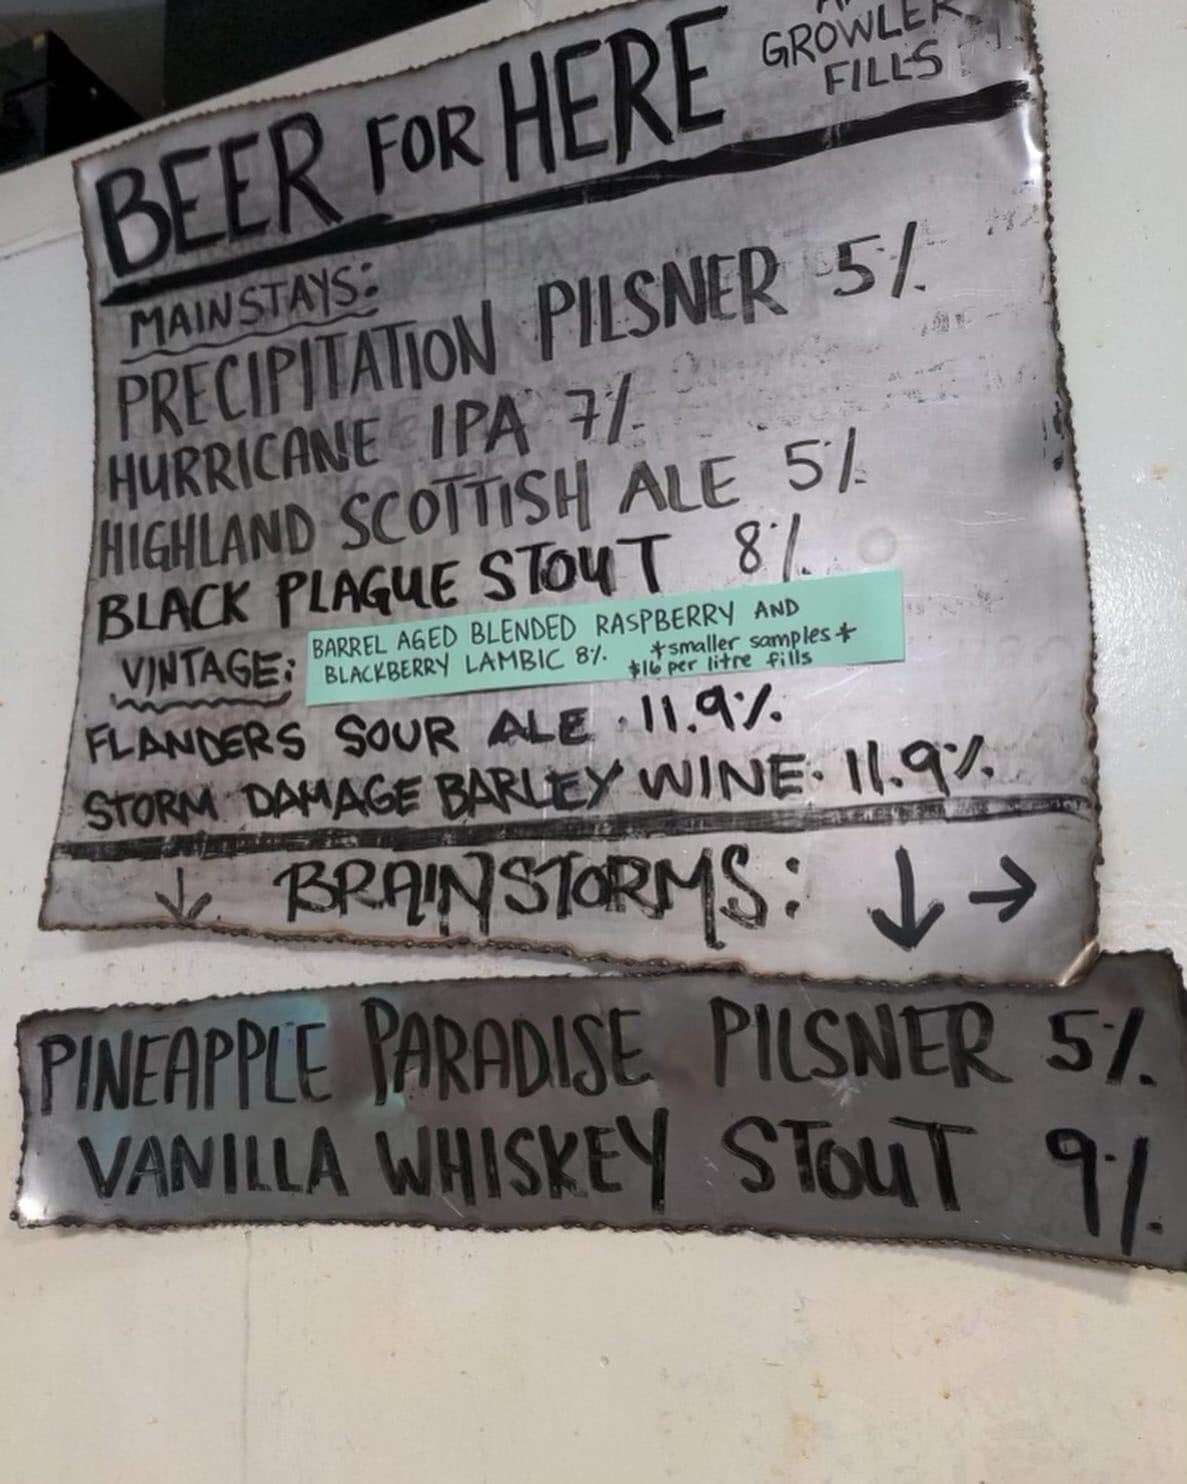 BEER FOR HERE
GROWLER
FILLS
MAINSTAYS:
PRECIPITATION PILSNER 5%
HURRICANE IPA 7%
HIGHLAND SCOTTISH ALE 5%
BLACK PLAGUE STOUT 8%
VINTAGE:
BARREL AGED BLENDED RASPBERRY AND
BLACKBERRY LAMBIC 8%
*smaller samples*
$16 per litre fills
FLANDERS SOUR ALE · 11.9%
STORM DAMAGE BARLEY WINE · 11.9%
↓ BRAINSTORMS: ↓ →
PINEAPPLE PARADISE PILSNER 5%
VANILLA WHISKEY STOUT 9%